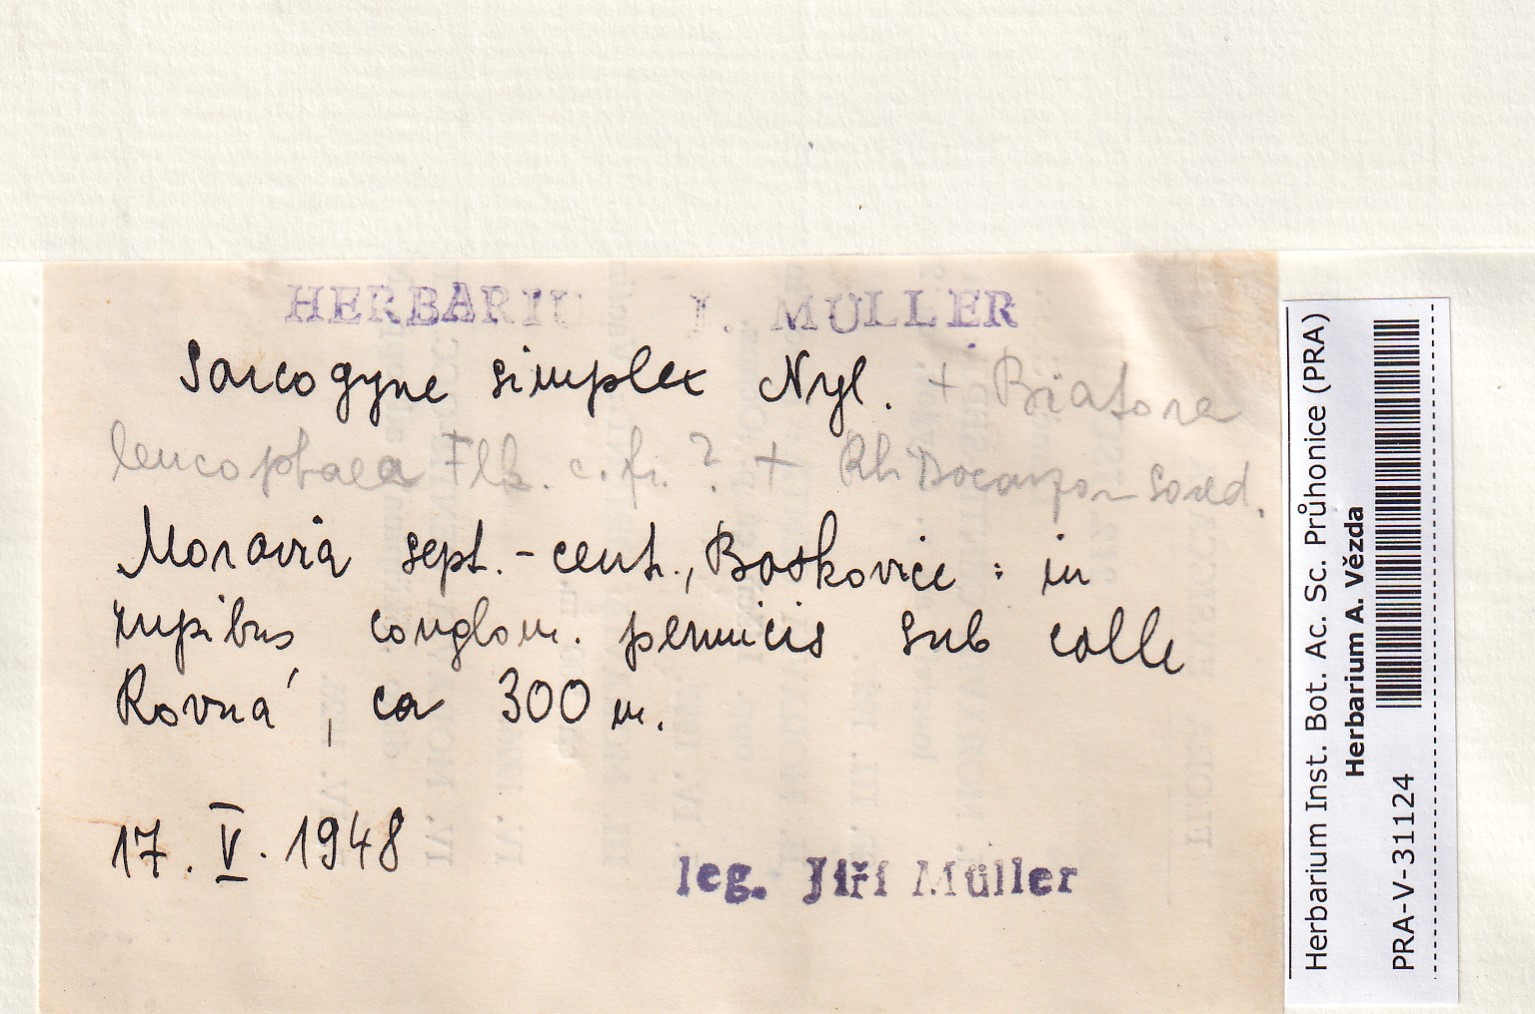 HERBARIU J. MULLER
Sarcogyne simplex Nyl. + Biatora
leucophaea Flk. c. fr. ? + Rhizocarpon sored.
Moravia sept. - cent., Boskovice : in
rupibus conglom. permicis sub colle
Rovná, ca 300 m.
17. V. 1948
leg. Jiří Müller
Herbarium Inst. Bot. Ac. Sc. Průhonice (PRA)
Herbarium A. Vězda
PRA-V-31124